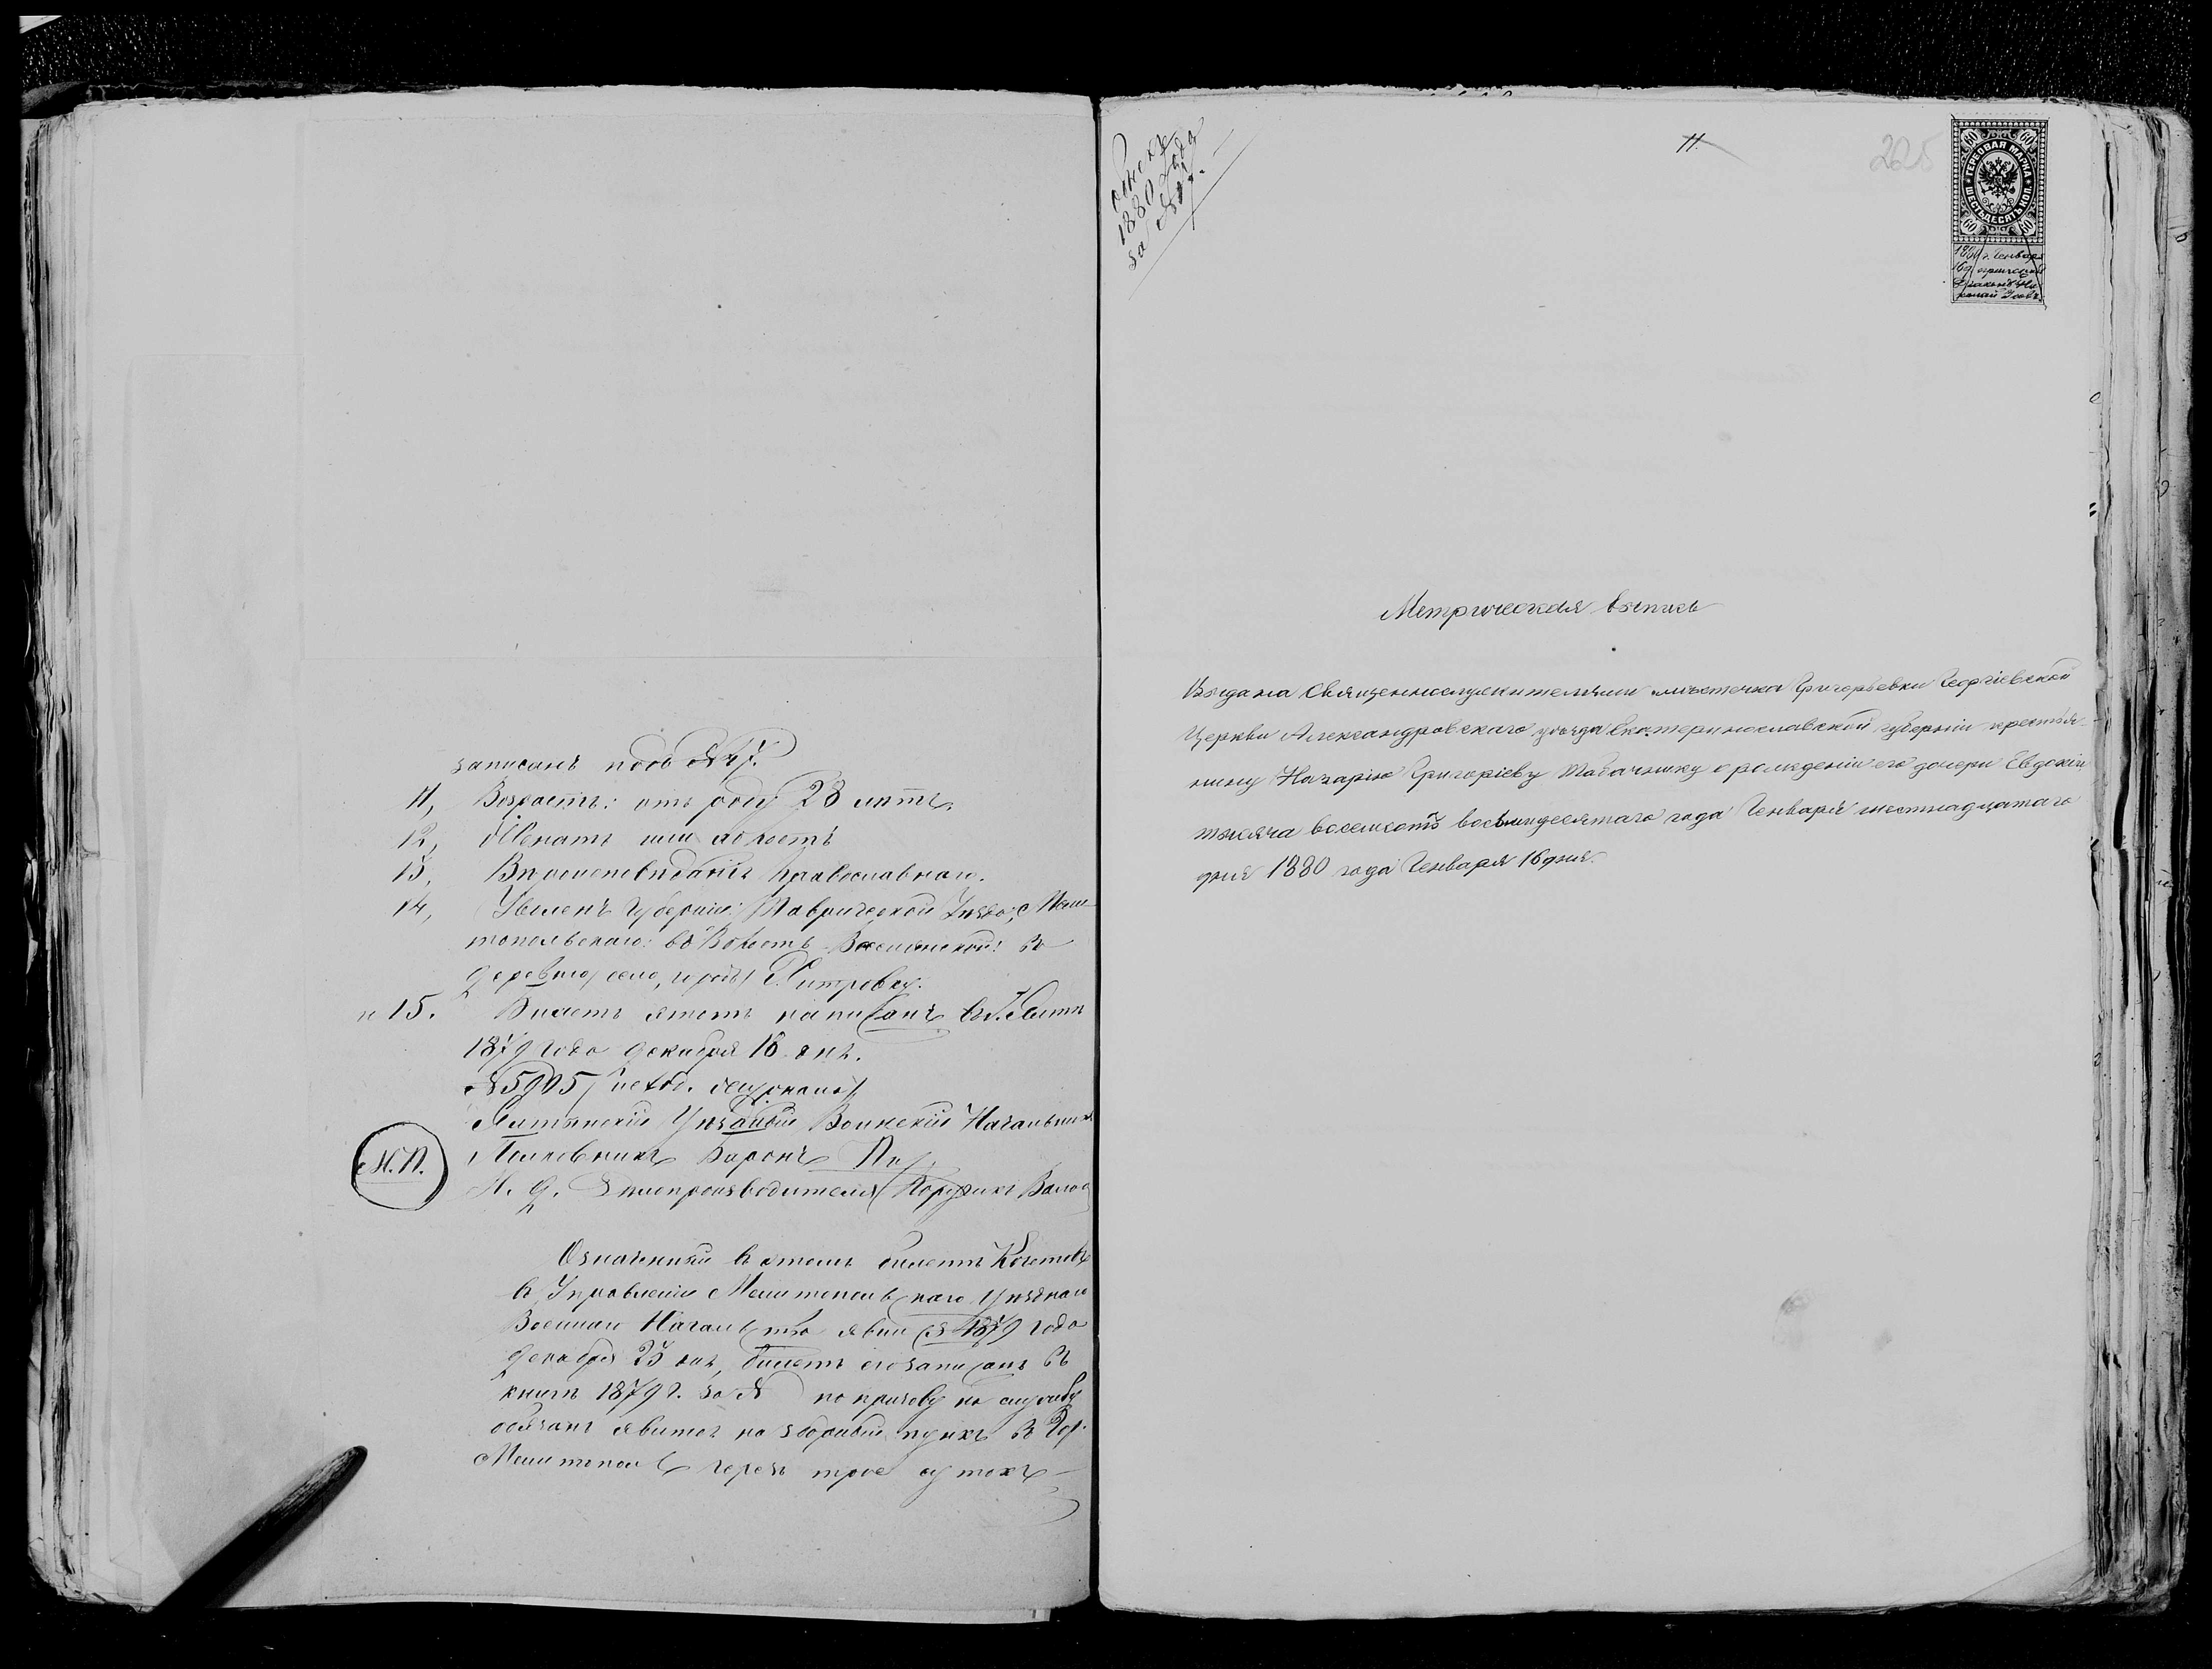 записанъ подъ №47.
11, Возрастъ: отъ роду 28 лѣтъ.
12, Женатъ или холостъ
13, Вѣроисповѣданія Православнаго.
14, Уволенъ Губерніи: Таврической Уѣзда: Мели-
топольскаго: въ Волость: въ
деревню, село, городъ
и 15. Билетъ этотъ написанъ въ
1879 года декабря 16 дня.
№5905 исход. журнала
Уѣздный Воинскій Начальникъ
Полковникъ Баронъ
М. П.
И. д. Дѣлопроизводителя
Означенный въ этомъ билетѣ
въ Управленіи Мелитопольскаго Уѣзднаго
Воинскаго явился 1879 года
декабря 25 дня, билетъ его записанъ въ
книгѣ 1879 г. за № по призову на службу
обязанъ явится на зборный пунктъ въ Гор.
Мелитополь черезъ трое сутокъ
1880 года
за №
11.
225
ГЕРБОВАЯ МАРКА
ШЕСТЬДЕСЯТЪ КОП.
60 60
60 60
1880 г. Генваря
16 д.
Метрическая выпись
Выдана Священнослужителями мѣстечка Григорьевки Георгіевской
Церкви Александровскаго уѣзда Екатеринославской губерніи крестья-
нину Назарію Григоріеву Табачнику о рожденіи его дочери Евдокіи,
тысяча восемсотъ восьмидесятаго года Генваря шестнадцатаго
дня 1880 года Генваря 16 дня.